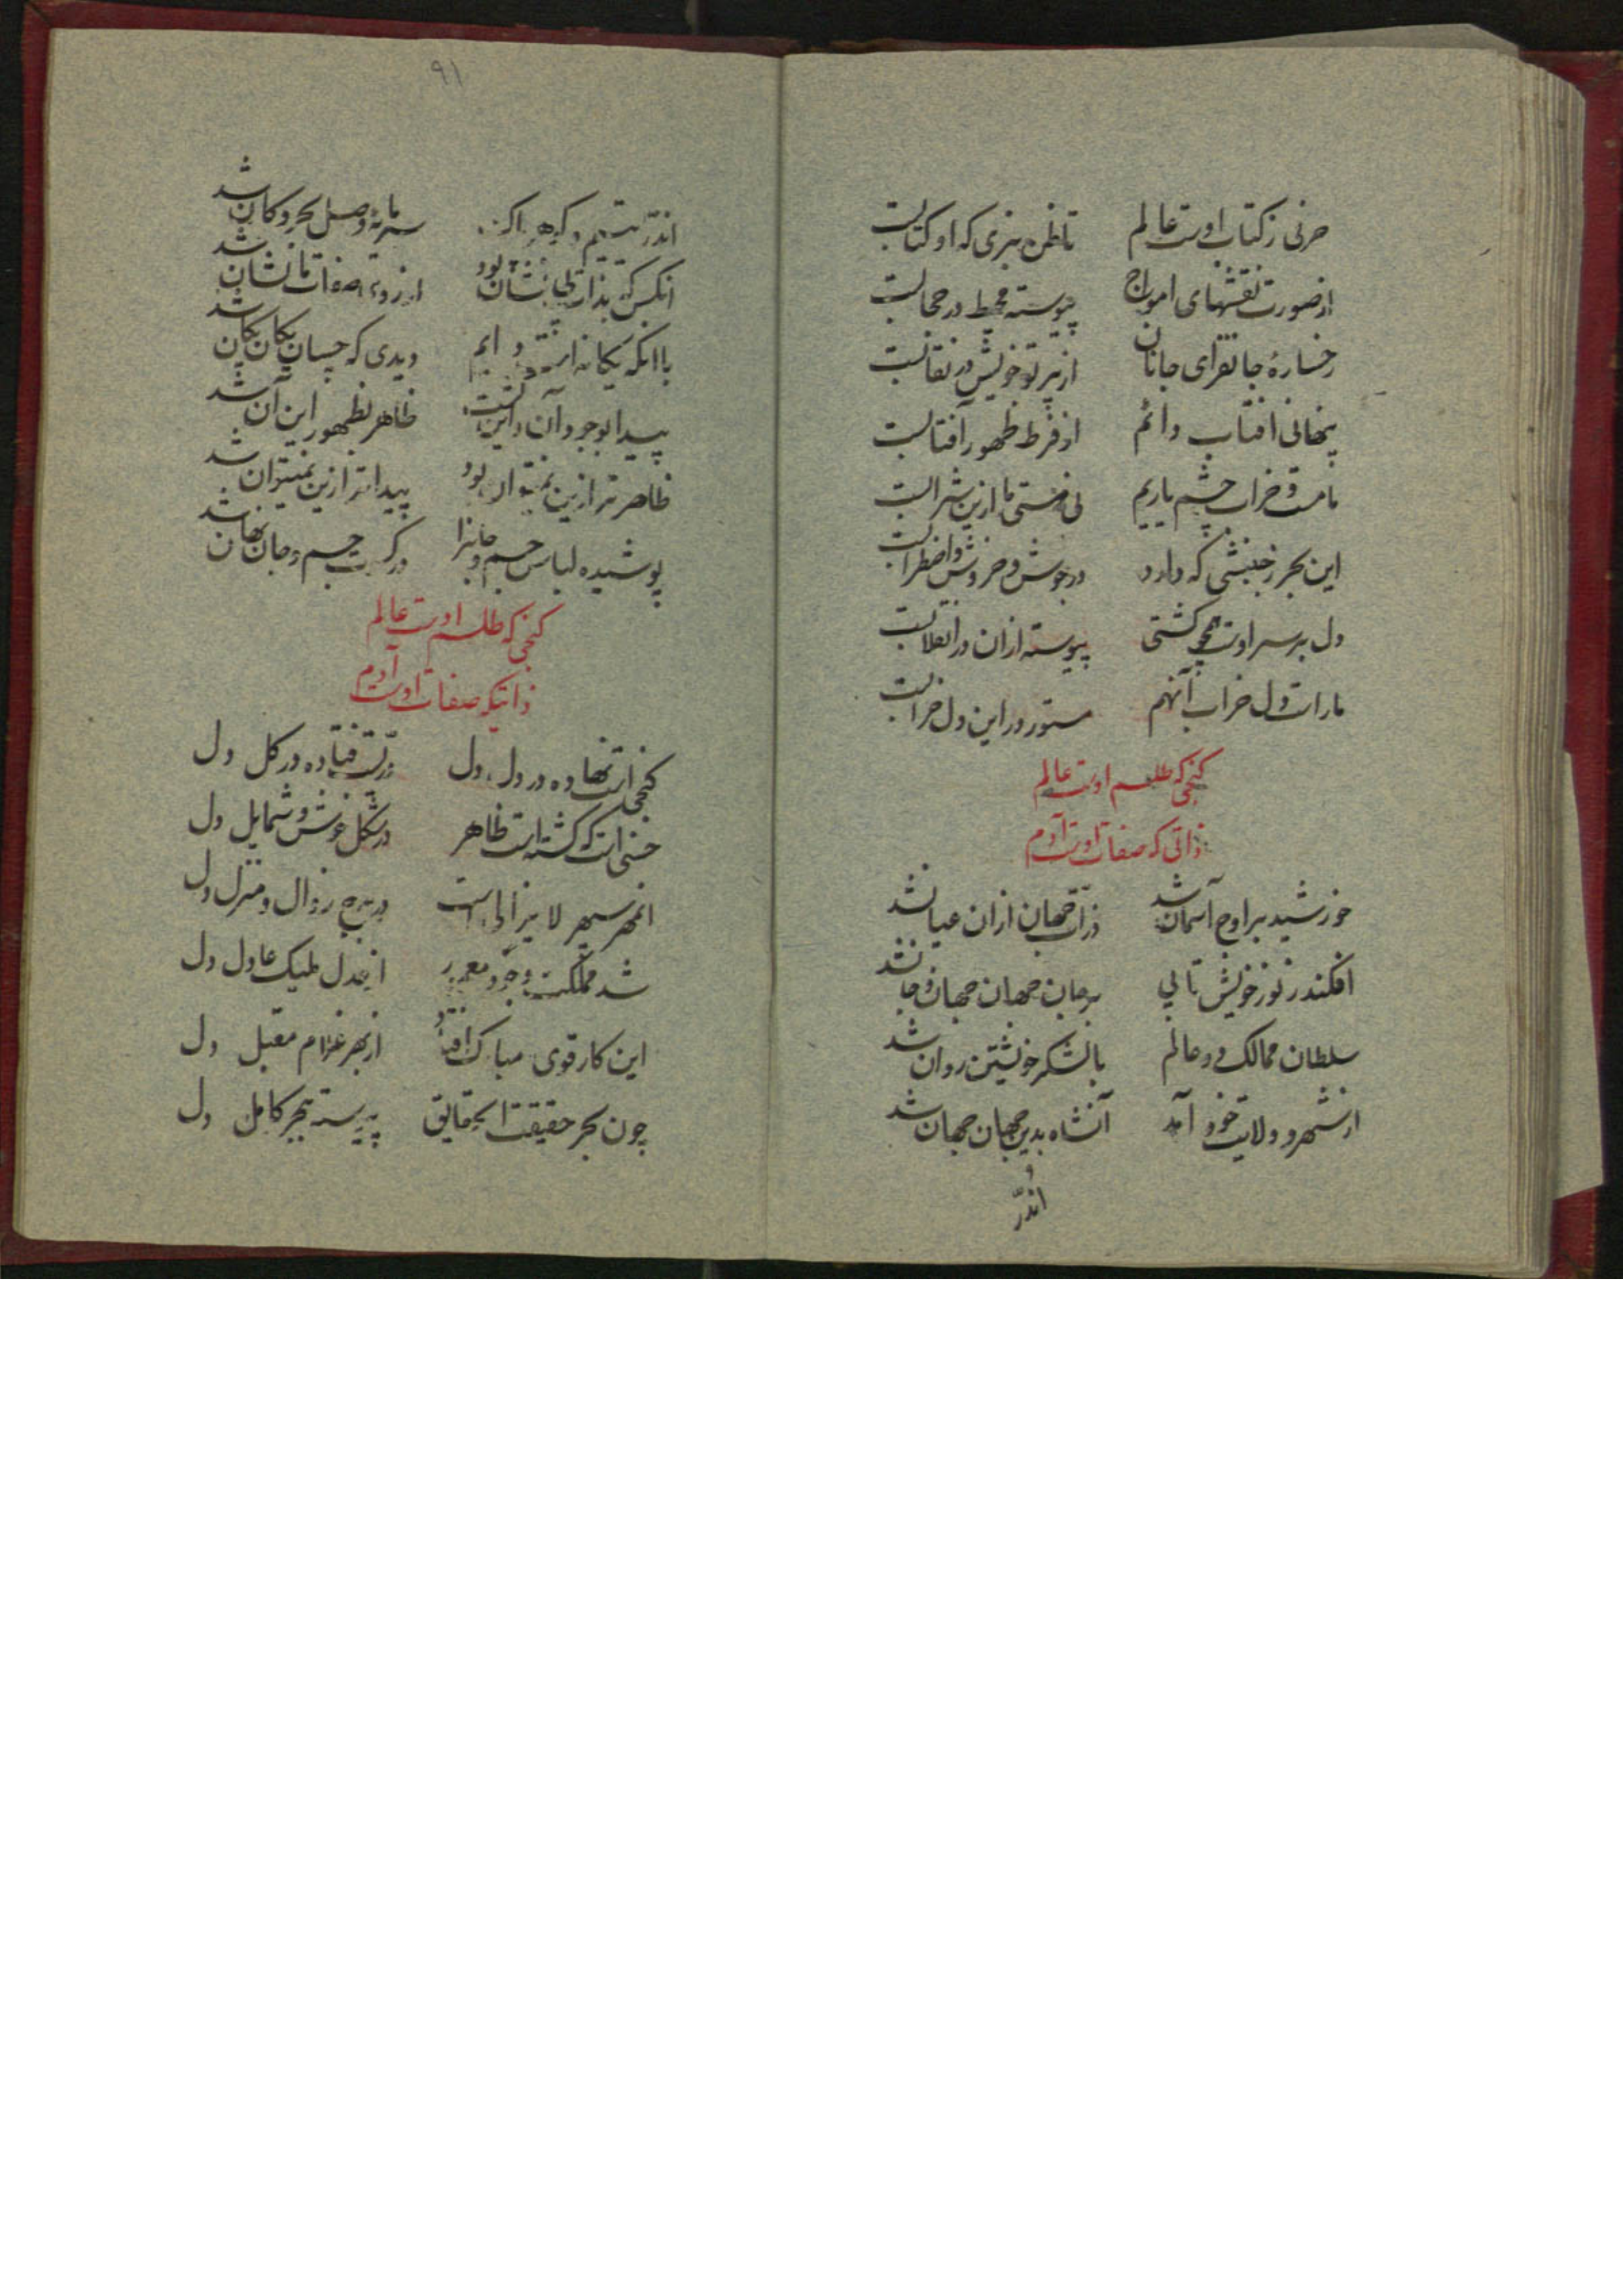 حرفی ز کتاب اوست عالم تا ظن نبری که او کتابست
از صورت نقشهای امواج پیوسته محیط در حجابست
رخسارهٔ جانفزای جانان از پرتو خویش در نقابست
پنهانی آفتاب دائم از فرط ظهور آفتابست
ما مست و خراب چشم یاریم نی مستی ما ازین شرابست
این بحر ز جنبشی که دارد در جوش و خروش و اضطرابست
دل بر سر اوست همچو کشتی پیوسته از آن در انقلابست
ما راست دل خراب آنهم مستور در این دل خرابست
گنجی که طلسم اوست عالم
ذاتی که صفات اوست آدم
خورشید بر اوج آسمان شد ذرات جهان ازان عیان شد
افکند ز نور خویش تابی بر جان جهان جهان و جان شد
سلطان ممالک دو عالم با لشکر خویشتن روان شد
از شهر و ولایت خود آمد آنشاه بدین جهان جهان شد
اندر
٩١
اندر یتیم و گوهر سرمایهٔ وصل بحر و کان شد
انکس که بذات بی نشان بود از روی صفات با نشان شد
با انکه یکانه است دایم دیدی که چسان یکان یکان شد
پیدا بوجود آن و این گشت ظاهر بظهور این و آن شد
ظاهر تر ازین نمیتوان بود پیدا تر ازین نمیتوان شد
پوشیده لباس جسم و جانرا در کسوت جسم و جان نهان شد
گنجی که طلسم اوست عالم
ذاتیکه صفات اوست آدم
گنجی است نهاده در دل دل دریست فتاده در گل دل
حسنی است که گشته است ظاهر در شکل خوش و شمایل دل
انمهر سپهر لا یزالی است در برج زوال و منزل دل
شد مملکت وجود معمور از عدل ملیک عادل دل
این کار قوی مبارک افتاد از بهر غلام مقبل دل
چون بحر حقیقت الحقایق پیوسته ببحر کامل دل